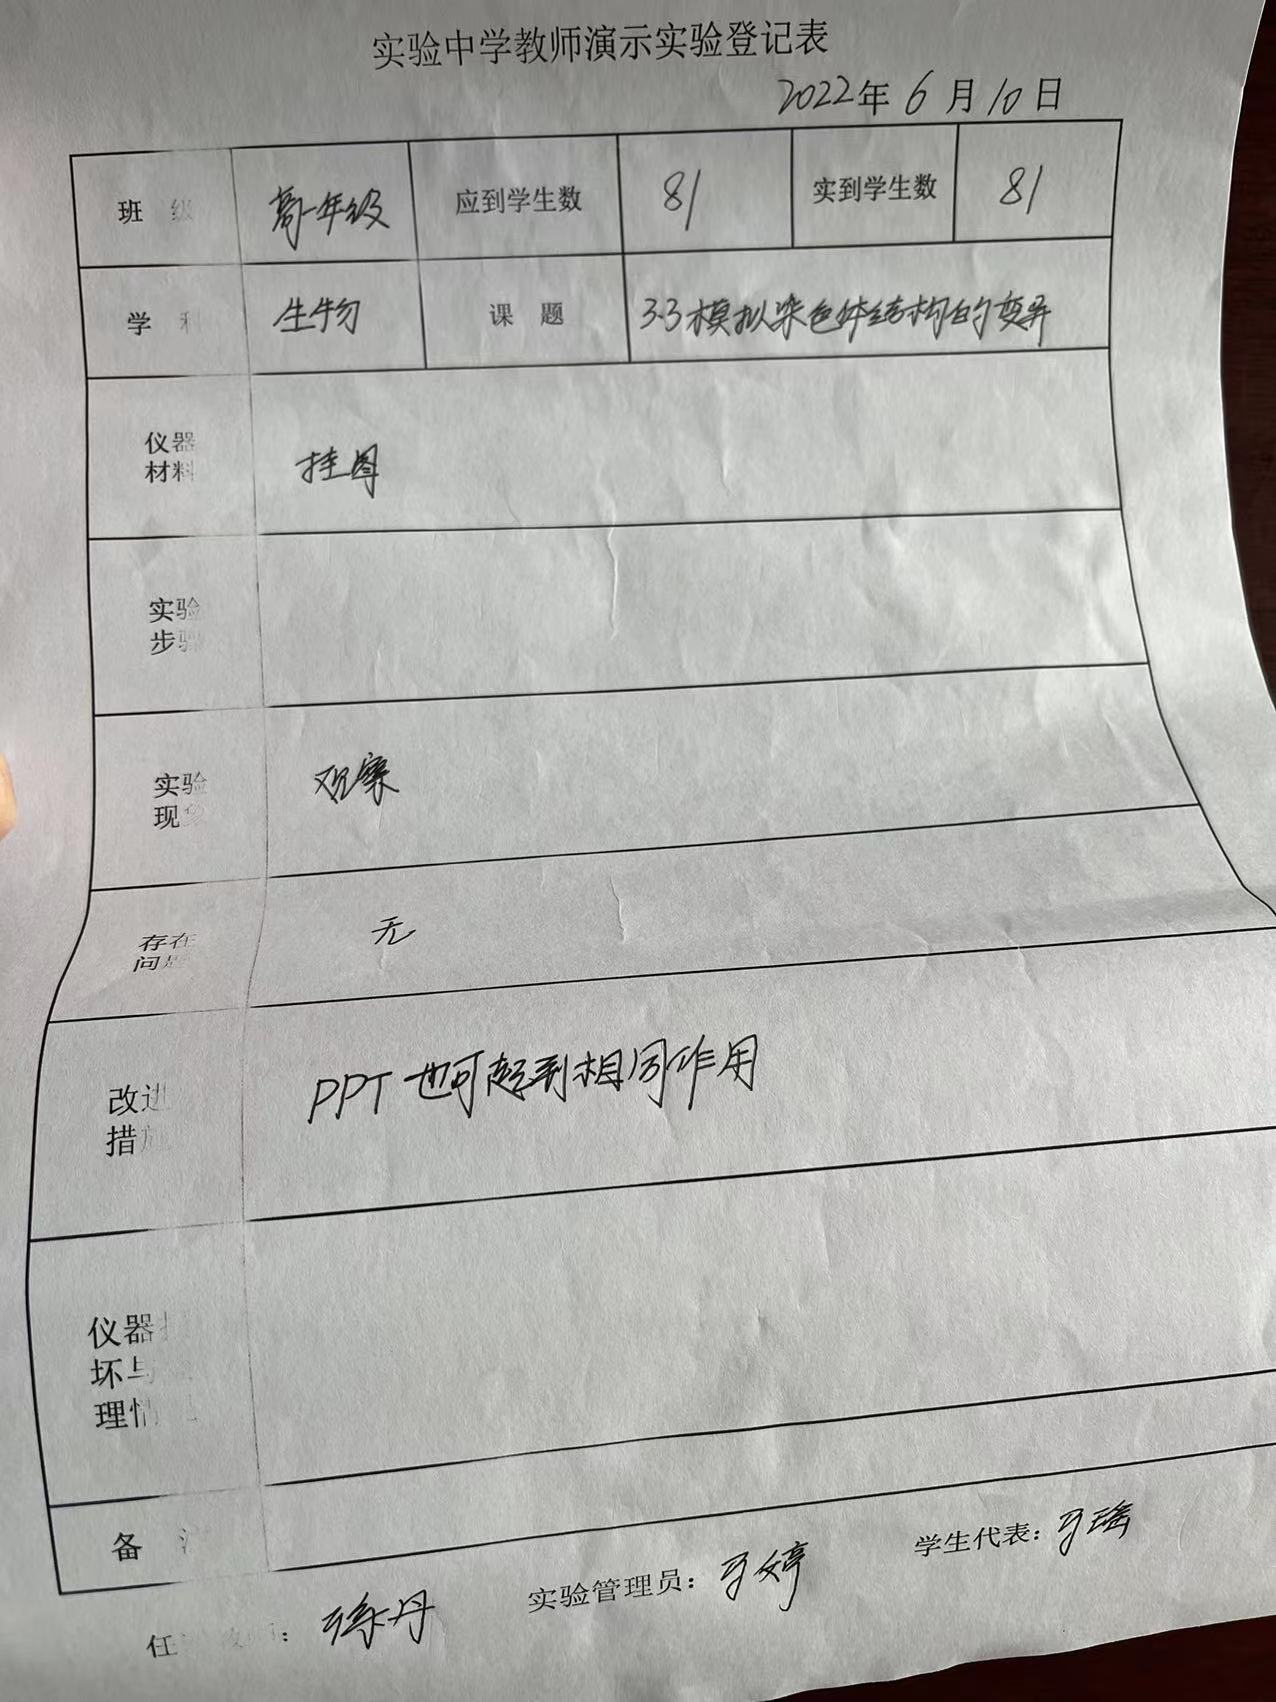 实验中学教师演示实验登记表
2022年 6 月 10 日
班 级 高一年级 应到学生数 81 实到学生数 81
学 科 生物 课 题 3.3模拟染色体结构的变异
仪器
材料 挂图
实验
步骤
实验
现象 观察
存在
问题 无
改进
措施 PPT 也可起到相同作用
仪器
坏与
理情
备 注
徐丹 实验管理员：马婷 学生代表：马瑶